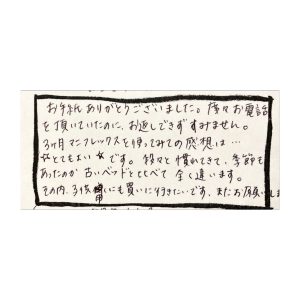 お手紙ありがとうございました。度々お電話
を頂いていたのに、お返しできずすみません。
3ヶ月マニフレックスを使ってみての感想は…
☆とてもよい☆です。段々と慣れてきて、季節も
あったのか古いベッドとくらべて全く違います。
その内、子供用にも買いに行きたいです。またお願いしま